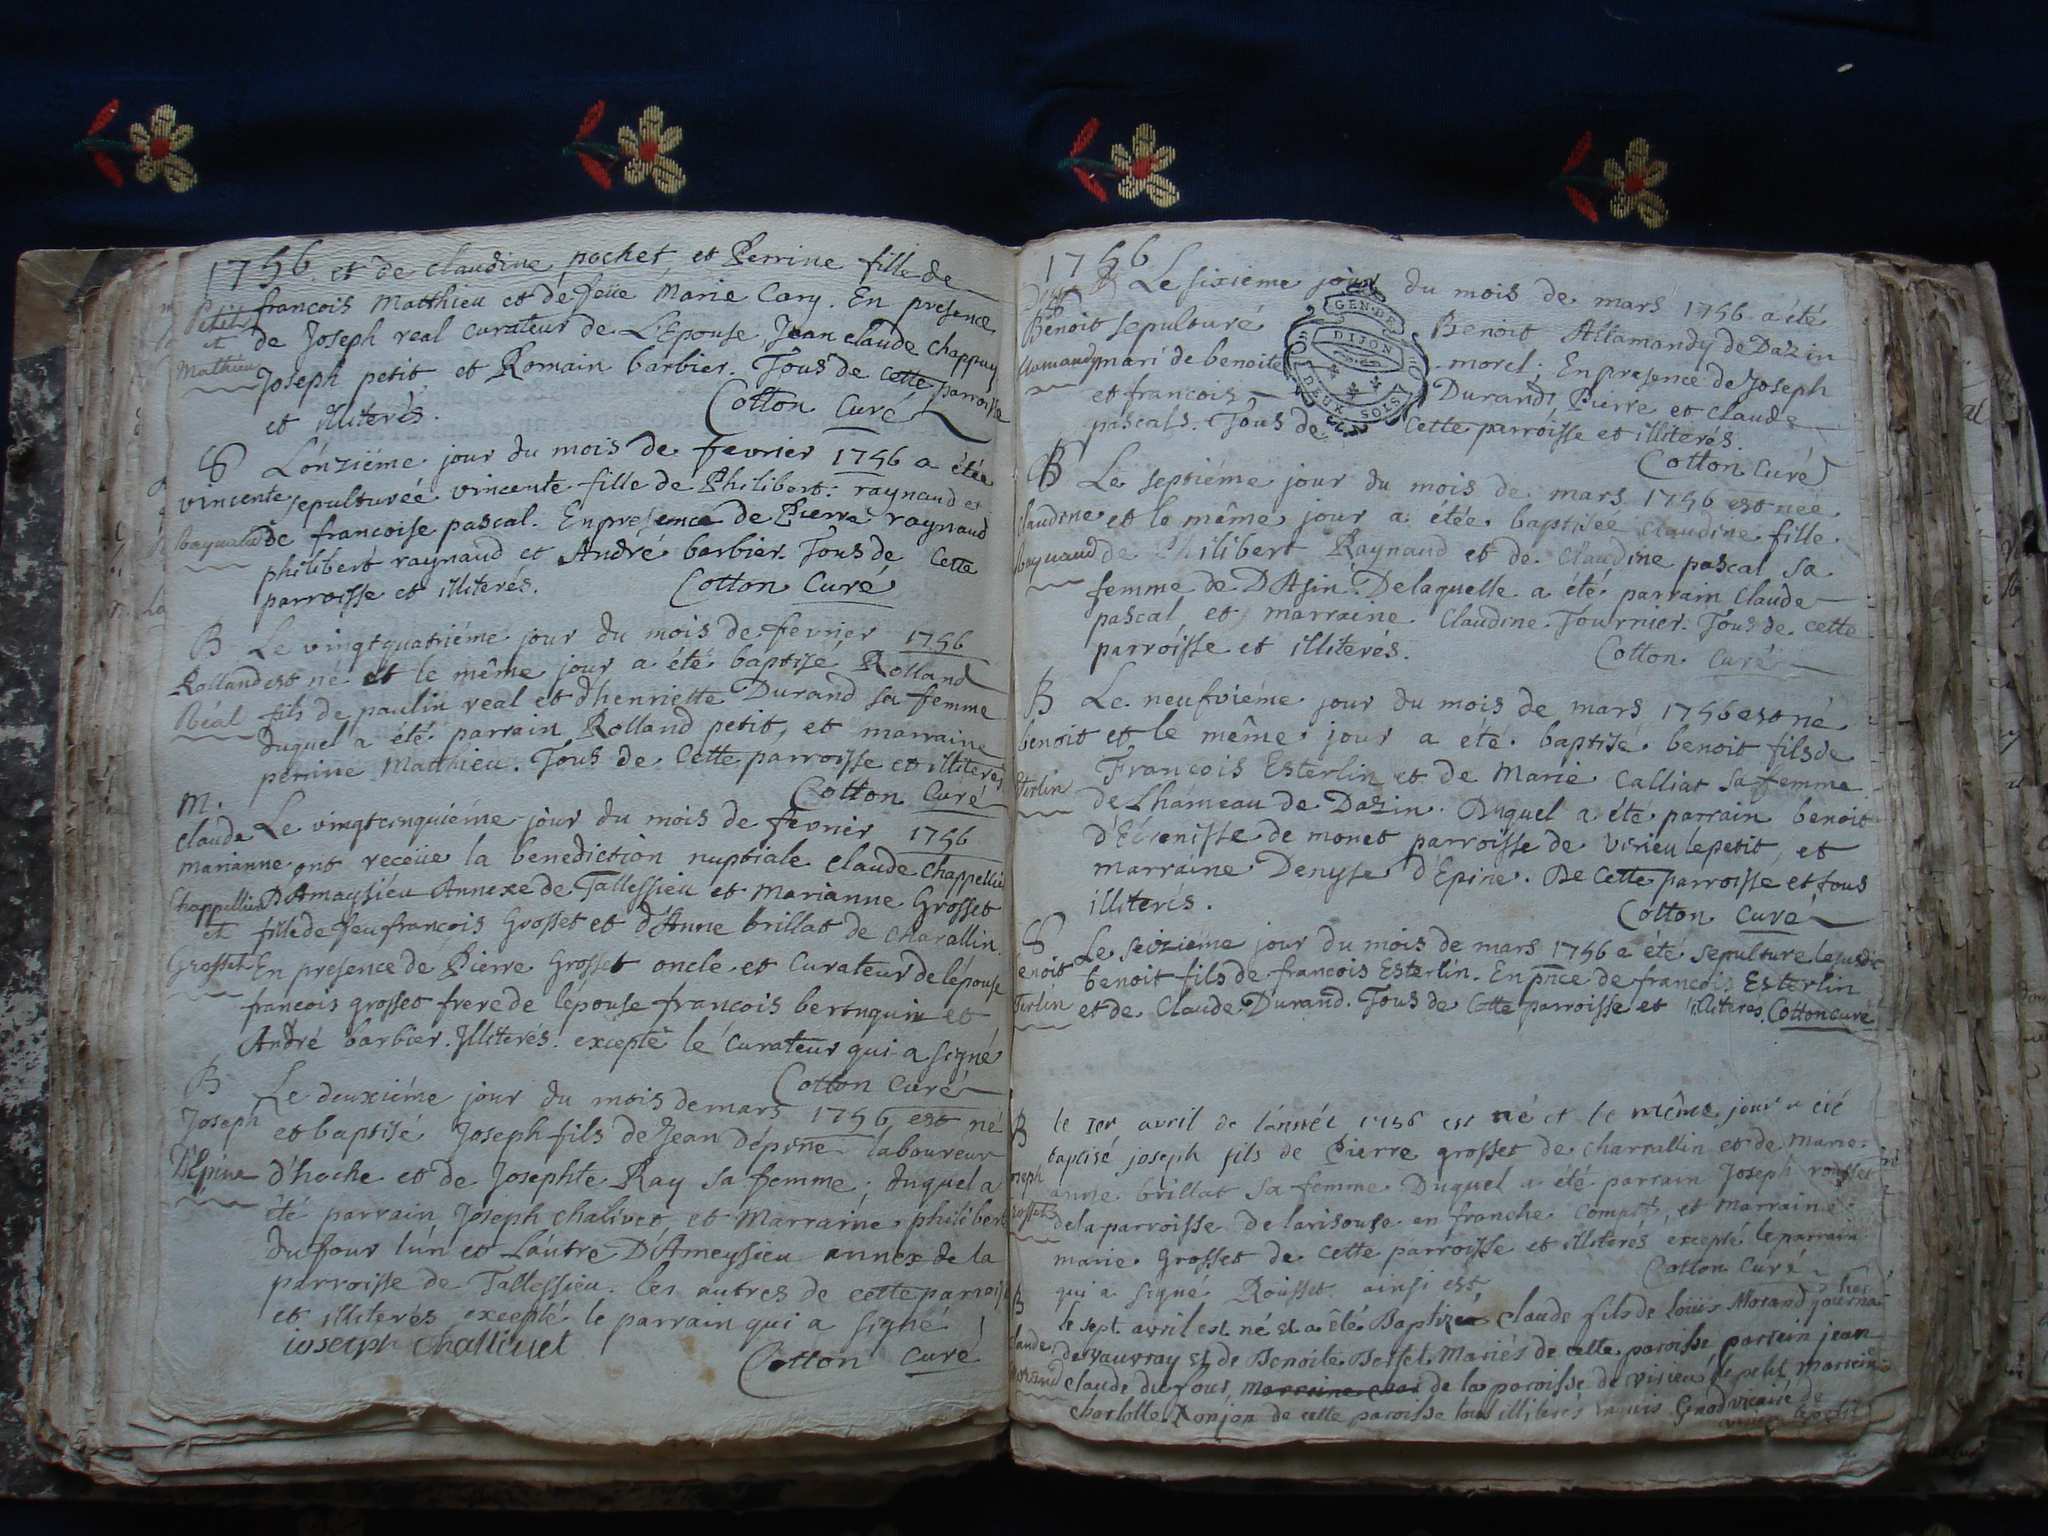 1756 et de claudine pochet et Perrine fille de
Petit françois Matthieu et de feüe Marie Cary. En presence
et de Joseph real curateur de L'Epouse, Jean claude chappuy
Mathieu Joseph petit et Romain barbier. Tous de cette parroisse
et illiterés. Cotton Curé
S L'onziéme jour du mois de fevrier 1756 a étée
vincente sepulturée vincente fille de Philibert raynaud et
Raynaud de francoise pascal. En presence de Pierre raynaud
philibert raynaud et André barbier. Tous de cette
parroisse et illiterés. Cotton Curé
B Le vingtquatriéme jour du mois de fevrier 1756
Rolland est né et le même jour a été baptisé Rolland
Réal fils de paulin real et d'henriette Durand sa femme
duquel a été parrain Rolland petit, et marraine
perrine Matthieu. Tous de cette parroisse et illiterés
Cotton Curé
M.
claude Le vingtcinquiéme jour du mois de fevrier 1756
marianne ont receüe la benediction nuptiale claude chappellu
Chappellu D'Amaysiéu Annexe de Tallessieu et Marianne Grosset
et fille de feu françois Grosset et d'Anne brillat de charallin.
Grosset En presence de Pierre Grosset oncle et curateur de lépouse
francois grosset frere de lépouse francois bertnquin et
André barbier. Illiterés. excepté le curateur qui a signé
Cotton Curé
B Le deuxiéme jour du mois de mars 1756 est né
Joseph et baptisé Joseph fils de Jean dépine laboureur
D'Epine d'hoche et de Josephte Ray sa femme; duquel a
été parrain Joseph chalivet, et Marraine philibert
du four lun et Láutre D'Ameysieu annex de la
parroisse de Tallessieu. les autres de cette parroisse
et illiterés excepté le parrain qui a signé
ioseph challiuet
Cotton Curé
1756
Le sixiéme jour du mois de mars 1756 a été
Benoit sepulturé Benoit Allamandy de Dazin
Alamandy mari de benoite morel; En presence de Joseph
et francois Durand, Pierre et claude
pascals. Tous de cette parroisse et illiterés.
Cotton Curé
GEN DE
DIJON
DEUX SOLS
B Le septiéme jour du mois de mars 1756 est née
claudine et le même jour a étée baptisée claudine fille
Raynaud de Philibert Raynaud et de claudine pascal sa
femme de DAsin. De laquelle a été parrain claude
pascal et marraine Claudine Tournier. Tous de cette
parroisse et illiterés. Cotton Curé
B Le neufviéme jour du mois de mars 1756 est né
benoit et le même jour a été baptisé benoit fils de
Terlin François Esterlin et de Marie Calliat sa femme
de Lhameau de Dazin. Duquel a été parrain benoit
d'Ecrenisse de monet parroisse de virieu le petit, et
marraine Denyse d'Epine. De cette parroisse et tous
illiterés. Cotton Curé
S Le seiziéme jour du mois de mars 1756 a été sepulture le susdit
enoit benoit fils de francois Esterlin. En pñce de francois Esterlin
Terlin et de Claude Durand. Tous de cette parroisse et illiteres. Cotton curé
B le 1er avril de lánnéé 1756 est né et le même jour a été
baptisé joseph fils de Pierre grosset de charrallin et de marie
oseph anne brillat sa femme. Duquel a été parrain Joseph rousset
rosset de la parroisse de larisouse en franche Compté, et marraine
marie Grosset de cette parroisse et illiterés excepté le parrain
qui a signé Rousset ainsi est, Cotton Curé
B le sept avril est né et a été Baptizé claude fils de louis Morand journalier
laude de vauvray et de Benoite Bertet Mariés de cette paroisse parrein jean
orand claude du four, de la paroisse de virieu le petit, marreine
charlotte Ronjon de cette paroisse tous illiterés vicaire de
virieu le petit